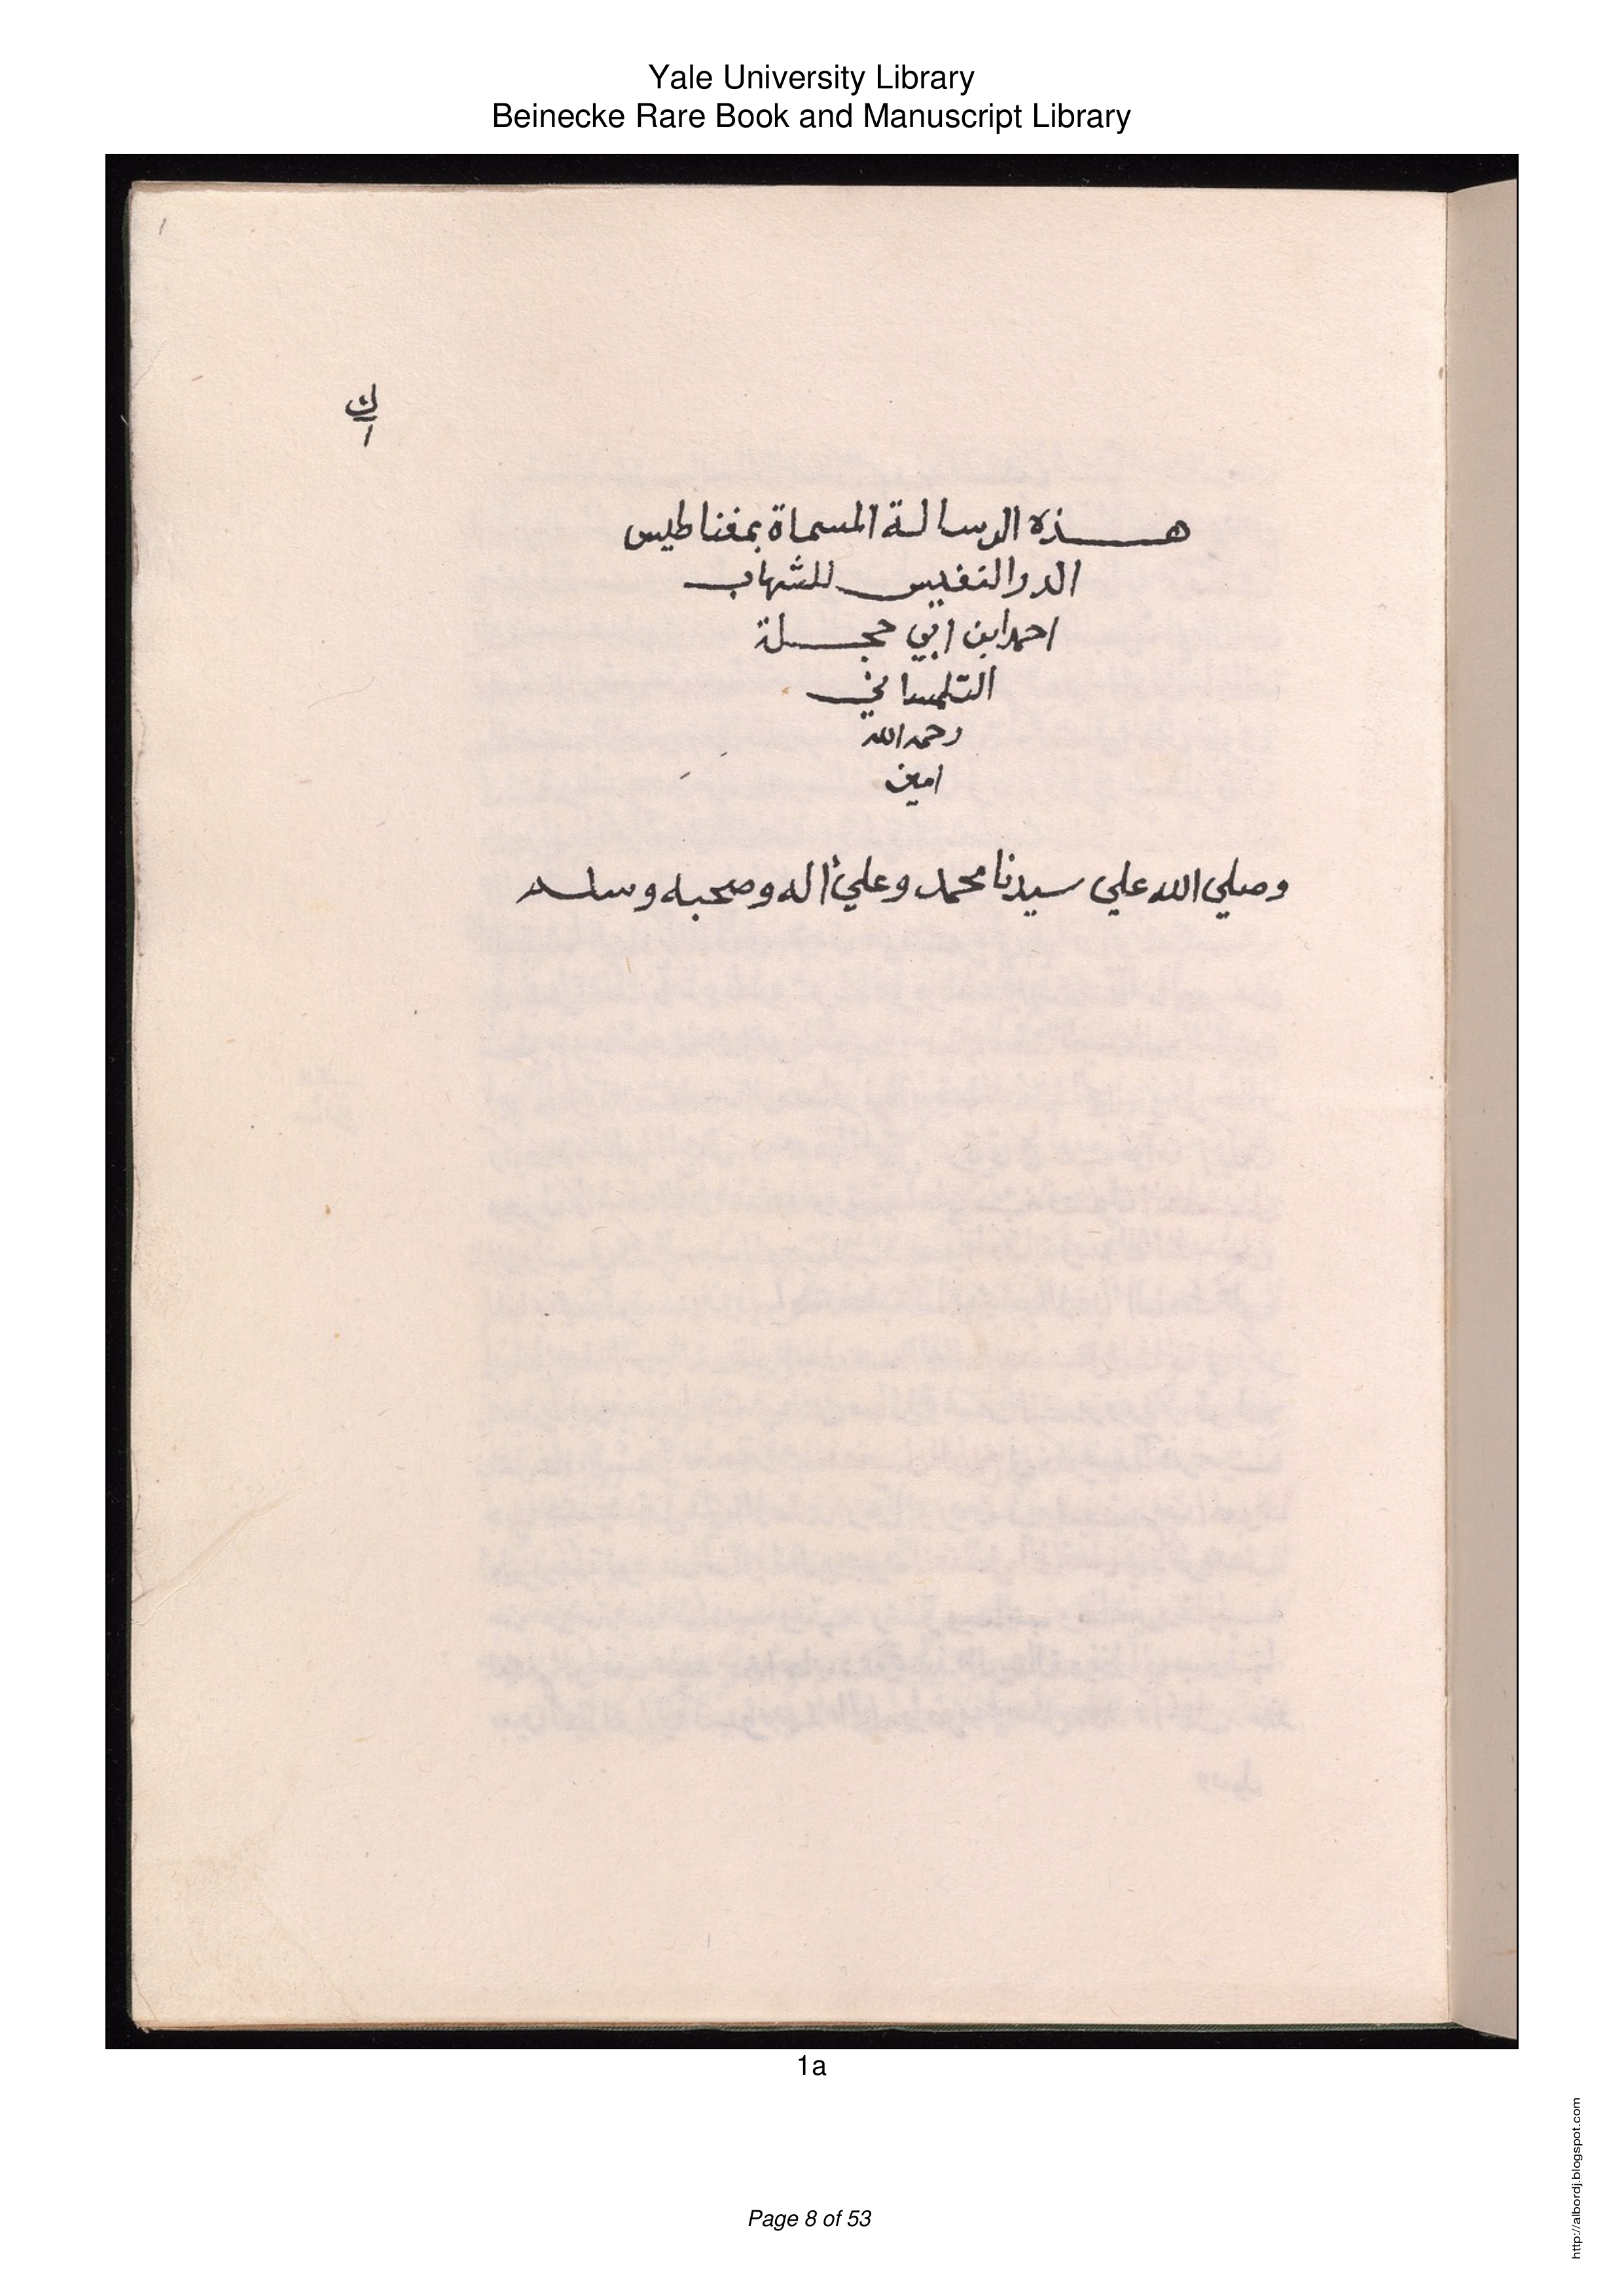 Yale University Library
Beinecke Rare Book and Manuscript Library
١
ك
١
هذه الرسالة المسماة بمغناطيس
الدر النفيس للشهاب
احمد ابن ابي حجلة
التلمساني
رحمه الله
امين
وصلي الله علي سيدنا محمد وعلي أله وصحبه وسلم
1a
Page 8 of 53
http://albordj.blogspot.com